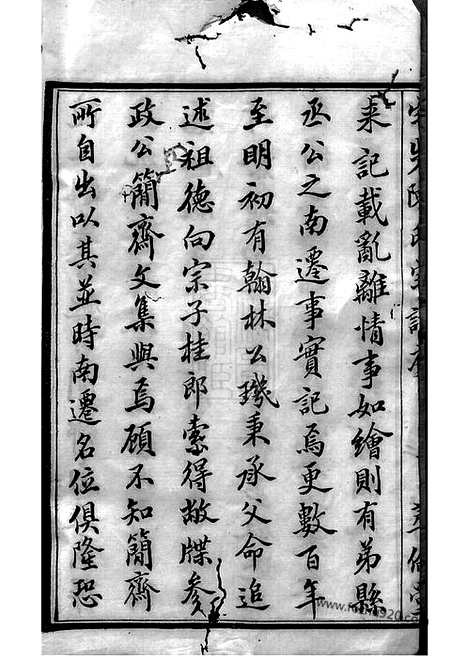 來記載亂離情事如繪則有弟縣
丞公之南遷事實記焉更數百年
至明初有翰林公璣秉承父命追
述祖德向宗子桂郎索得敝牒參
政公簡齋文集與焉顧不知簡齋
所自出以其並時南遷名位俱隆恐